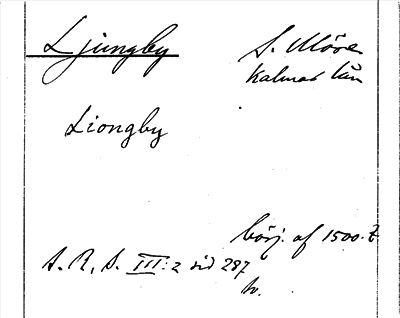 Ljungby
S. Möre
Kalmar län
Liongby
börj. af 1500.t.
S. R. S. III:2 sid 287
hv.